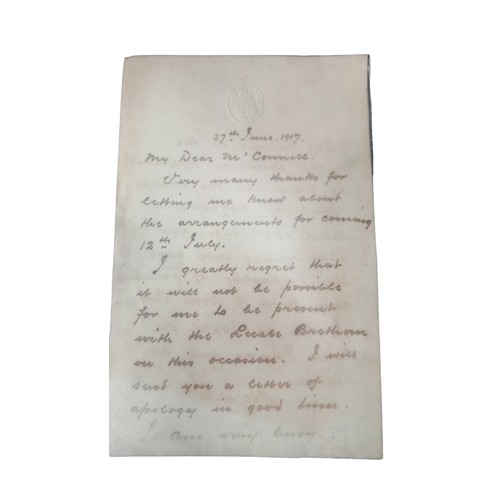 27th June. 1917.
My Dear Mc Connell.
Very many thanks for
letting me know about
the arrangements for coming
12th July.
I greatly regret that
it will not be possible
for me to be present
with the Lecale Brethren
on this occasion. I will
send you a letter of
apology in good time.
I am very busy.